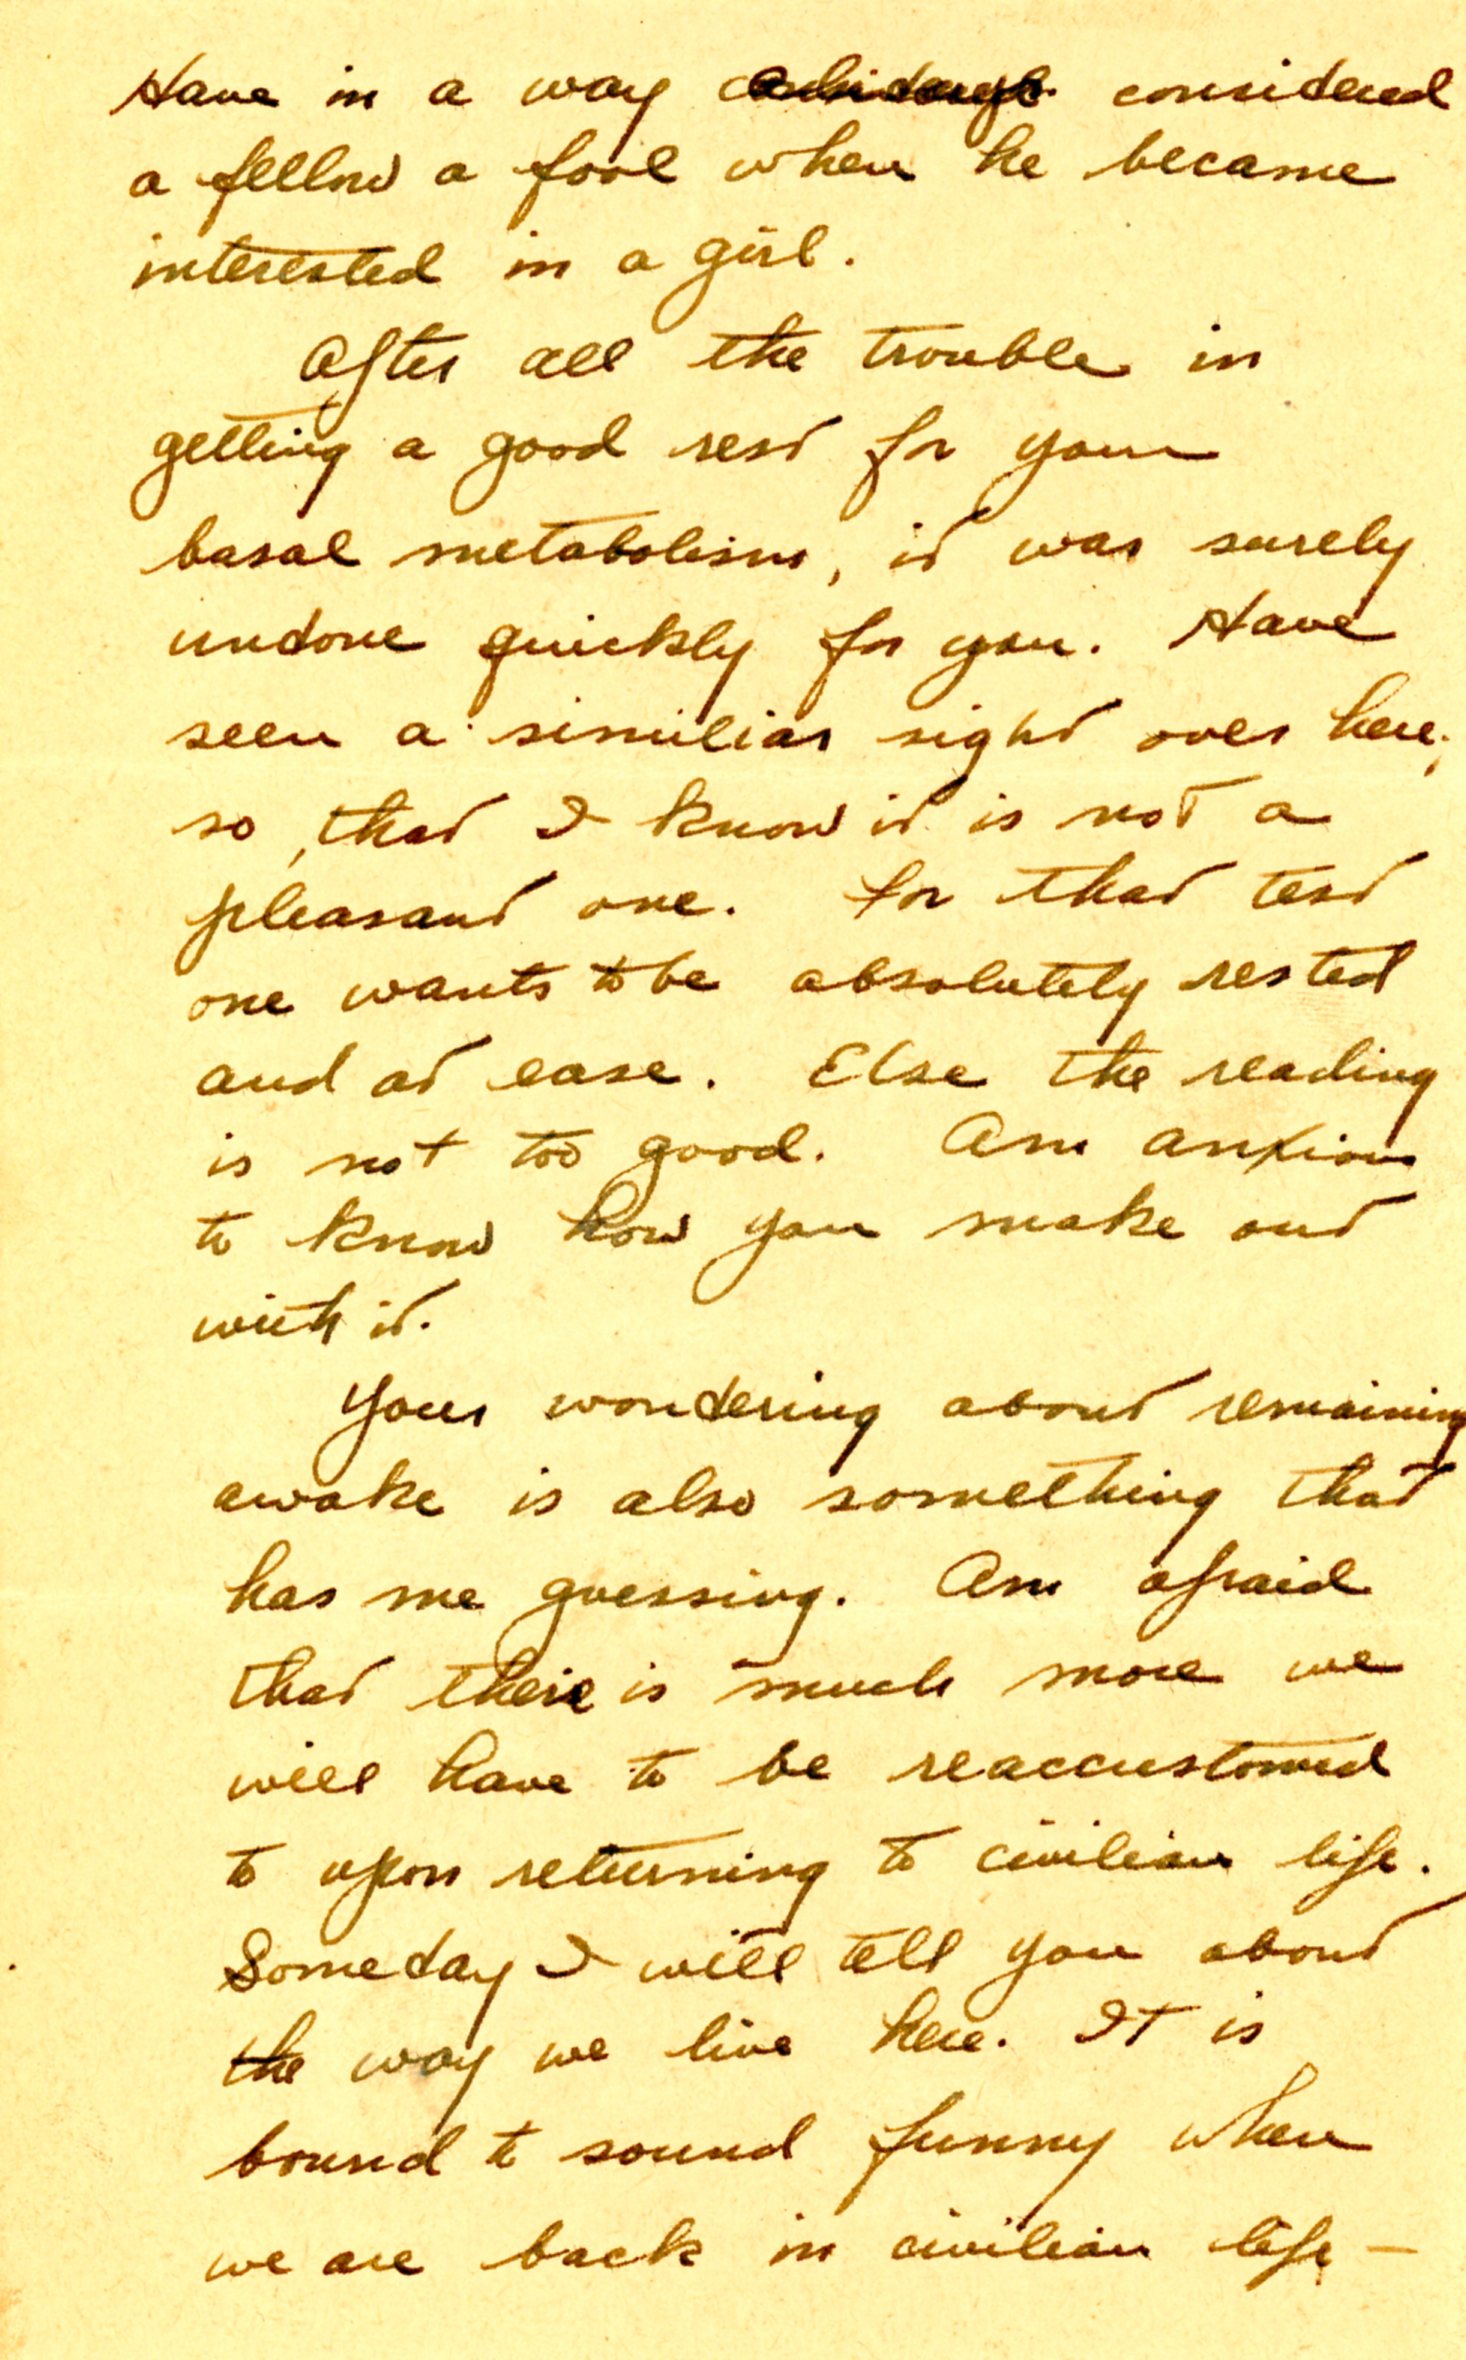 Have in a way considered
a fellow a fool when he became
interested in a girl.
After all the trouble in
getting a good rest for your
basal metabolism, it was surely
undone quickly for you. Have
seen a similiar sight over here,
so, that I know it is not a
pleasant one. For that test
one wants to be absolutely rested
and at ease. Else the reading
is not too good. Am anxious
to know how you make out
with it.
Your wondering about remaining
awake is also something that
has me guessing. Am afraid
that there is much more we
will have to be reaccustomed
to upon returning to civilian life.
Someday I will tell you about
the way we live here. It is
bound to sound funny when
we are back in civilian life -